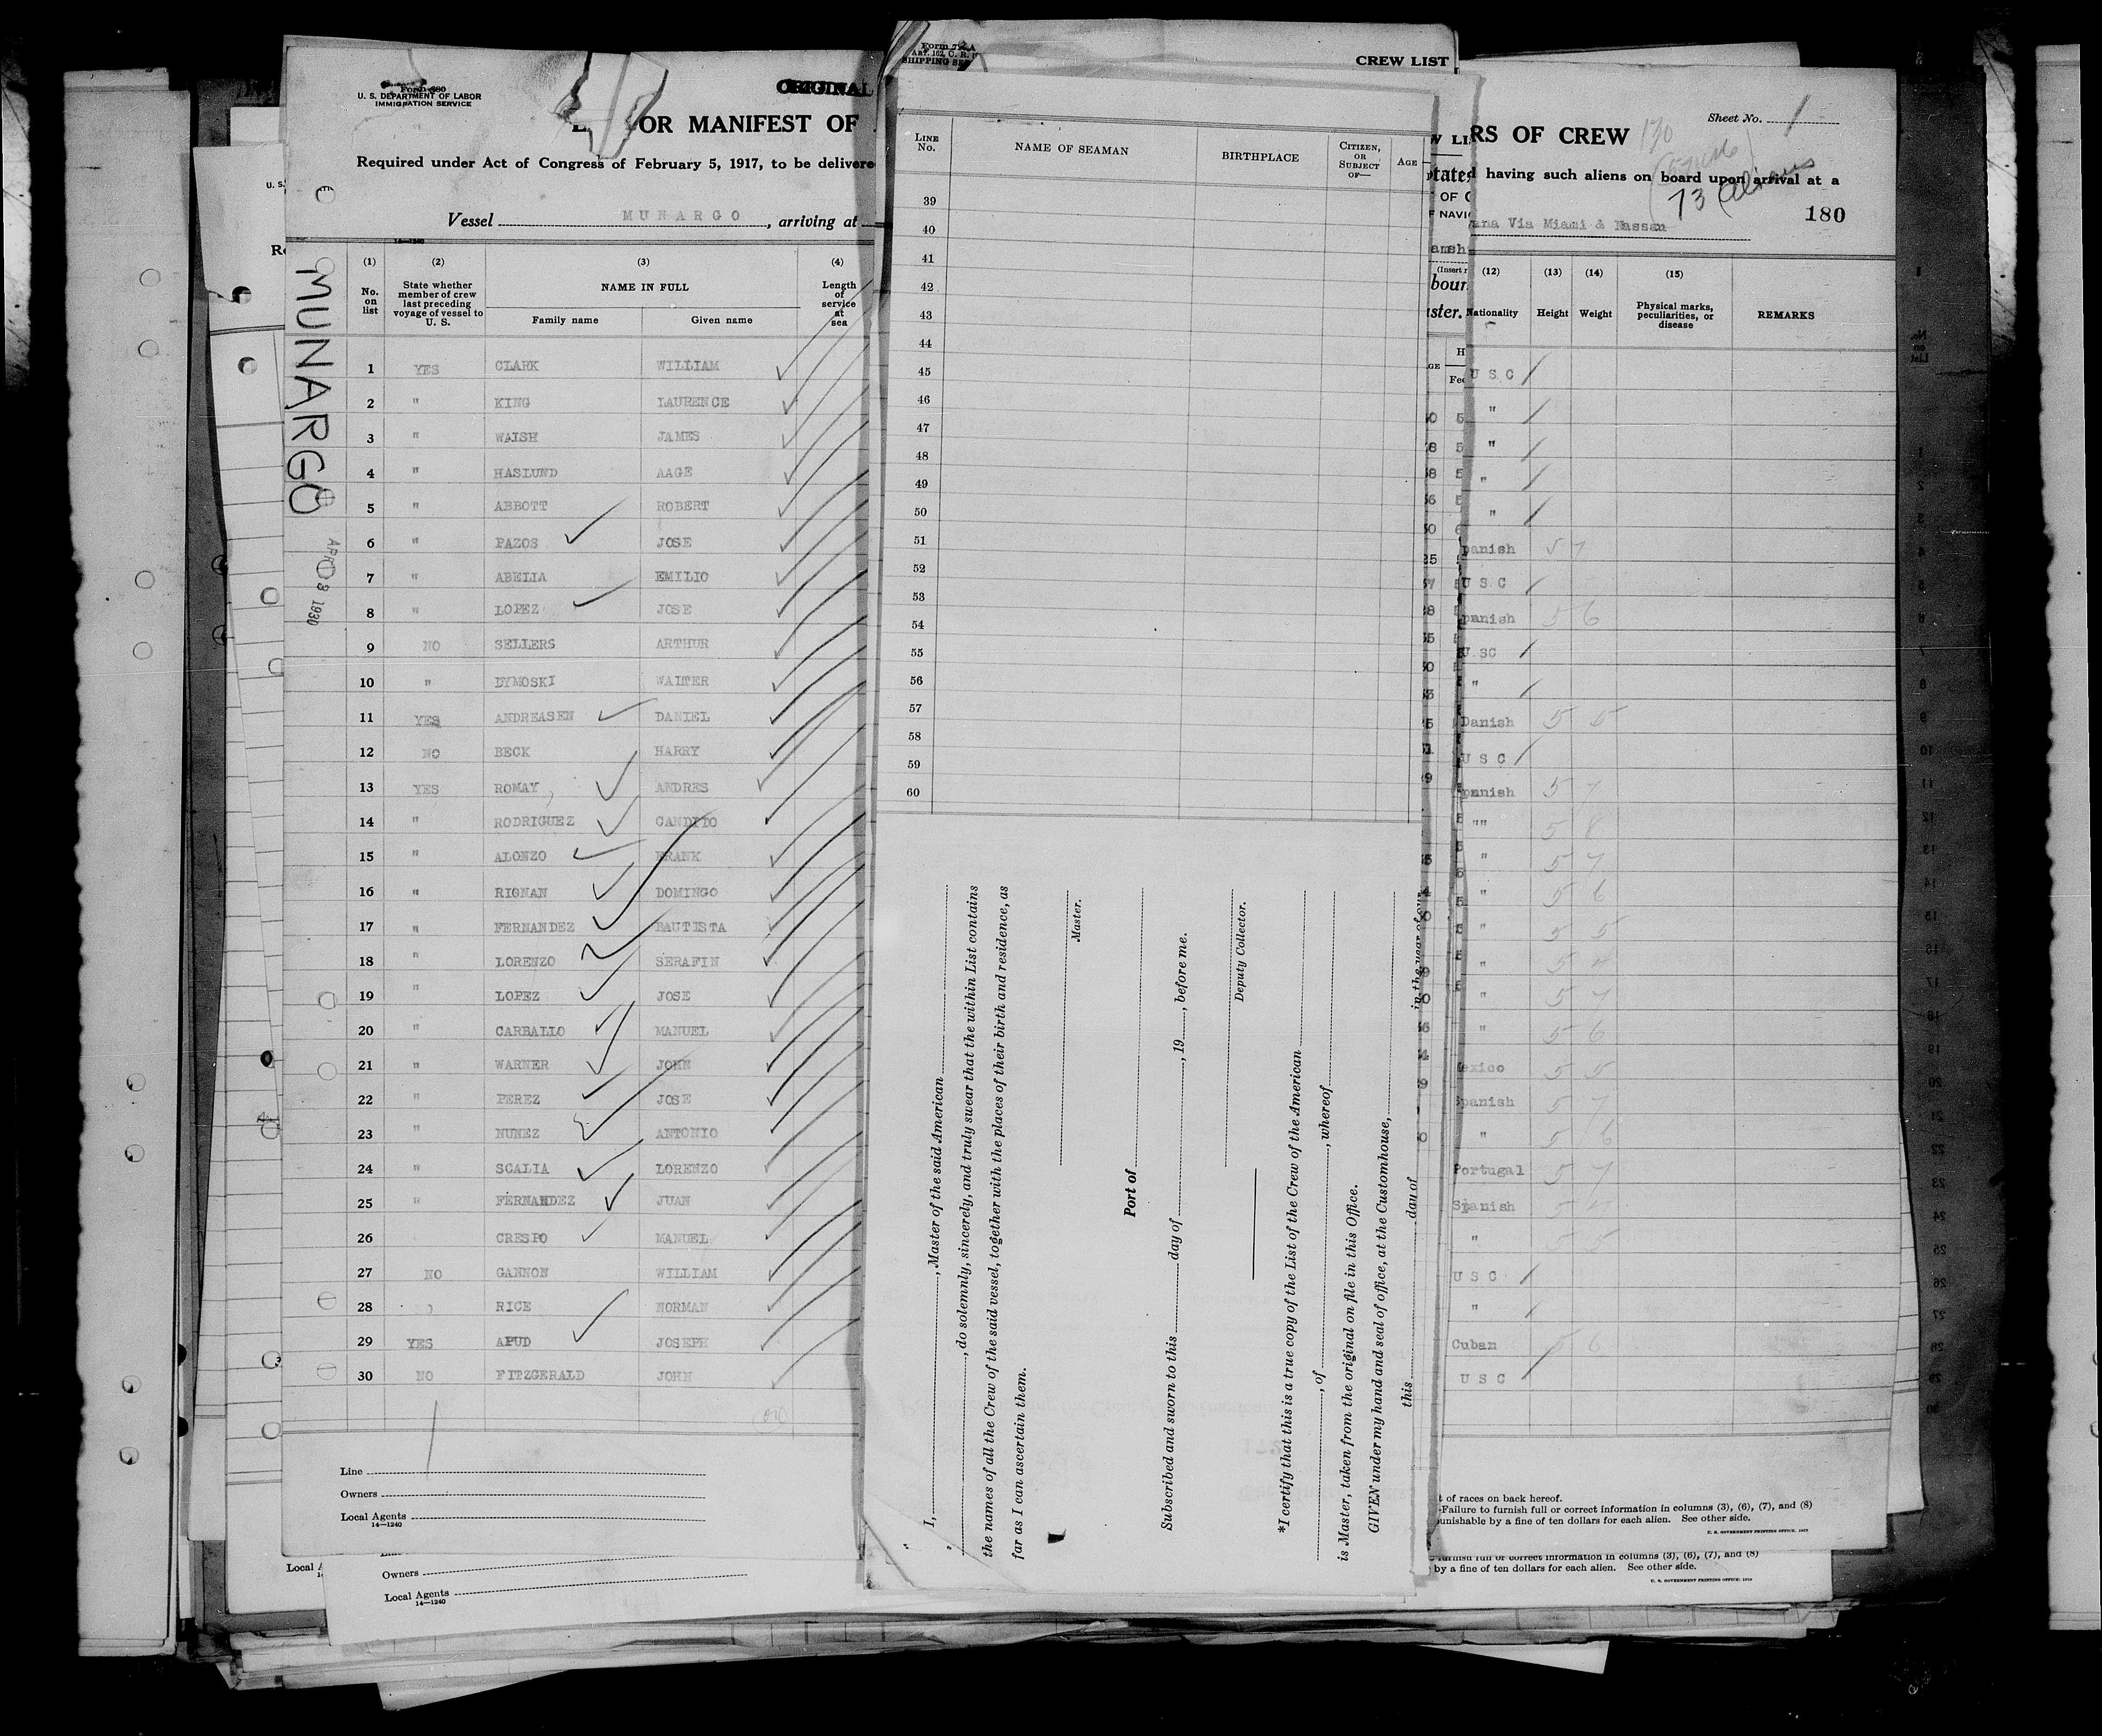 Form 680
U. S. DEPARTMENT OF LABOR
IMMIGRATION SERVICE
ORIGINAL
OR MANIFEST OF
Required under Act of Congress of February 5, 1917, to be delivere
Vessel MUNARGO, arriving at
14—1240
MUNARGO
APR 8 1930
(1) (2) (3) (4)
No. on list
State whether member of crew last preceding voyage of vessel to U. S.
NAME IN FULL
Family name Given name
Length of service at sea
1 YES CLARK WILLIAM
2 " KING LAURENCE
3 " WALSH JAMES
4 " HASLUND AAGE
5 " ABBOTT ROBERT
6 " PAZOS JOSE
7 " ABELIA EMILIO
8 " LOPEZ JOSE
9 NO SELLERS ARTHUR
10 " DYMOSKI WALTER
11 YES ANDREASEN DANIEL
12 NO BECK HARRY
13 YES ROMAY ANDRES
14 " RODRIGUEZ CANDIDO
15 " ALONZO FRANK
16 " RIGNAN DOMINGO
17 " FERNANDEZ BAUTISTA
18 " LORENZO SERAFIN
19 " LOPEZ JOSE
20 " CARBALLO MANUEL
21 " WARNER JOHN
22 " PEREZ JOSE
23 " NUNEZ ANTONIO
24 " SCALIA LORENZO
25 " FERNANDEZ JUAN
26 CRESPO MANUEL
27 NO GANNON WILLIAM
28 RICE NORMAN
29 YES APUD JOSEPH
30 NO FITZGERALD JOHN
Line
Owners
Local Agents
14—1240
Owners
Local Agents
14—1240
SHIPPING SE
CREW LIST
LINE No.
NAME OF SEAMAN
BIRTHPLACE
CITIZEN, OR SUBJECT OF—
AGE
39
40
41
42
43
44
45
46
47
48
49
50
51
52
53
54
55
56
57
58
59
60
I, , Master of the said American
, do solemnly, sincerely, and truly swear that the within List contains
the names of all the Crew of the said vessel, together with the places of their birth and residence, as
far as I can ascertain them.
Master.
Port of
Subscribed and sworn to this day of , 19 , before me.
Deputy Collector.
*I certify that this is a true copy of the List of the Crew of the American
, of , whereof
is Master, taken from the original on file in this Office.
GIVEN under my hand and seal of office, at the Customhouse,
this day of in the year of our
RS OF CREW
Sheet No. 1
130
73 Aliens
having such aliens on board upon arrival at a
180
ana Via Miami & Nassau
(12) (13) (14) (15)
Nationality Height Weight
Physical marks, peculiarities, or disease
REMARKS
U S C
"
"
"
"
panish 5 7
U S C
panish 5 6
U SC
"
Danish 5 5
U S C
panish 5 7
"" 5 8
" 5 7
" 5 6
" 5 5
"
" 5 7
" 5 6
exico 5 5
panish 5 7
" 5 6
Portugal 5 7
Spanish
" 5 5
U S C
"
Cuban 5 6
U S C
t of races on back hereof.
Failure to furnish full or correct information in columns (3), (6), (7), and (8)
unishable by a fine of ten dollars for each alien. See other side.
furnish full or correct information in columns (3), (6), (7), and (8)
by a fine of ten dollars for each alien. See other side.